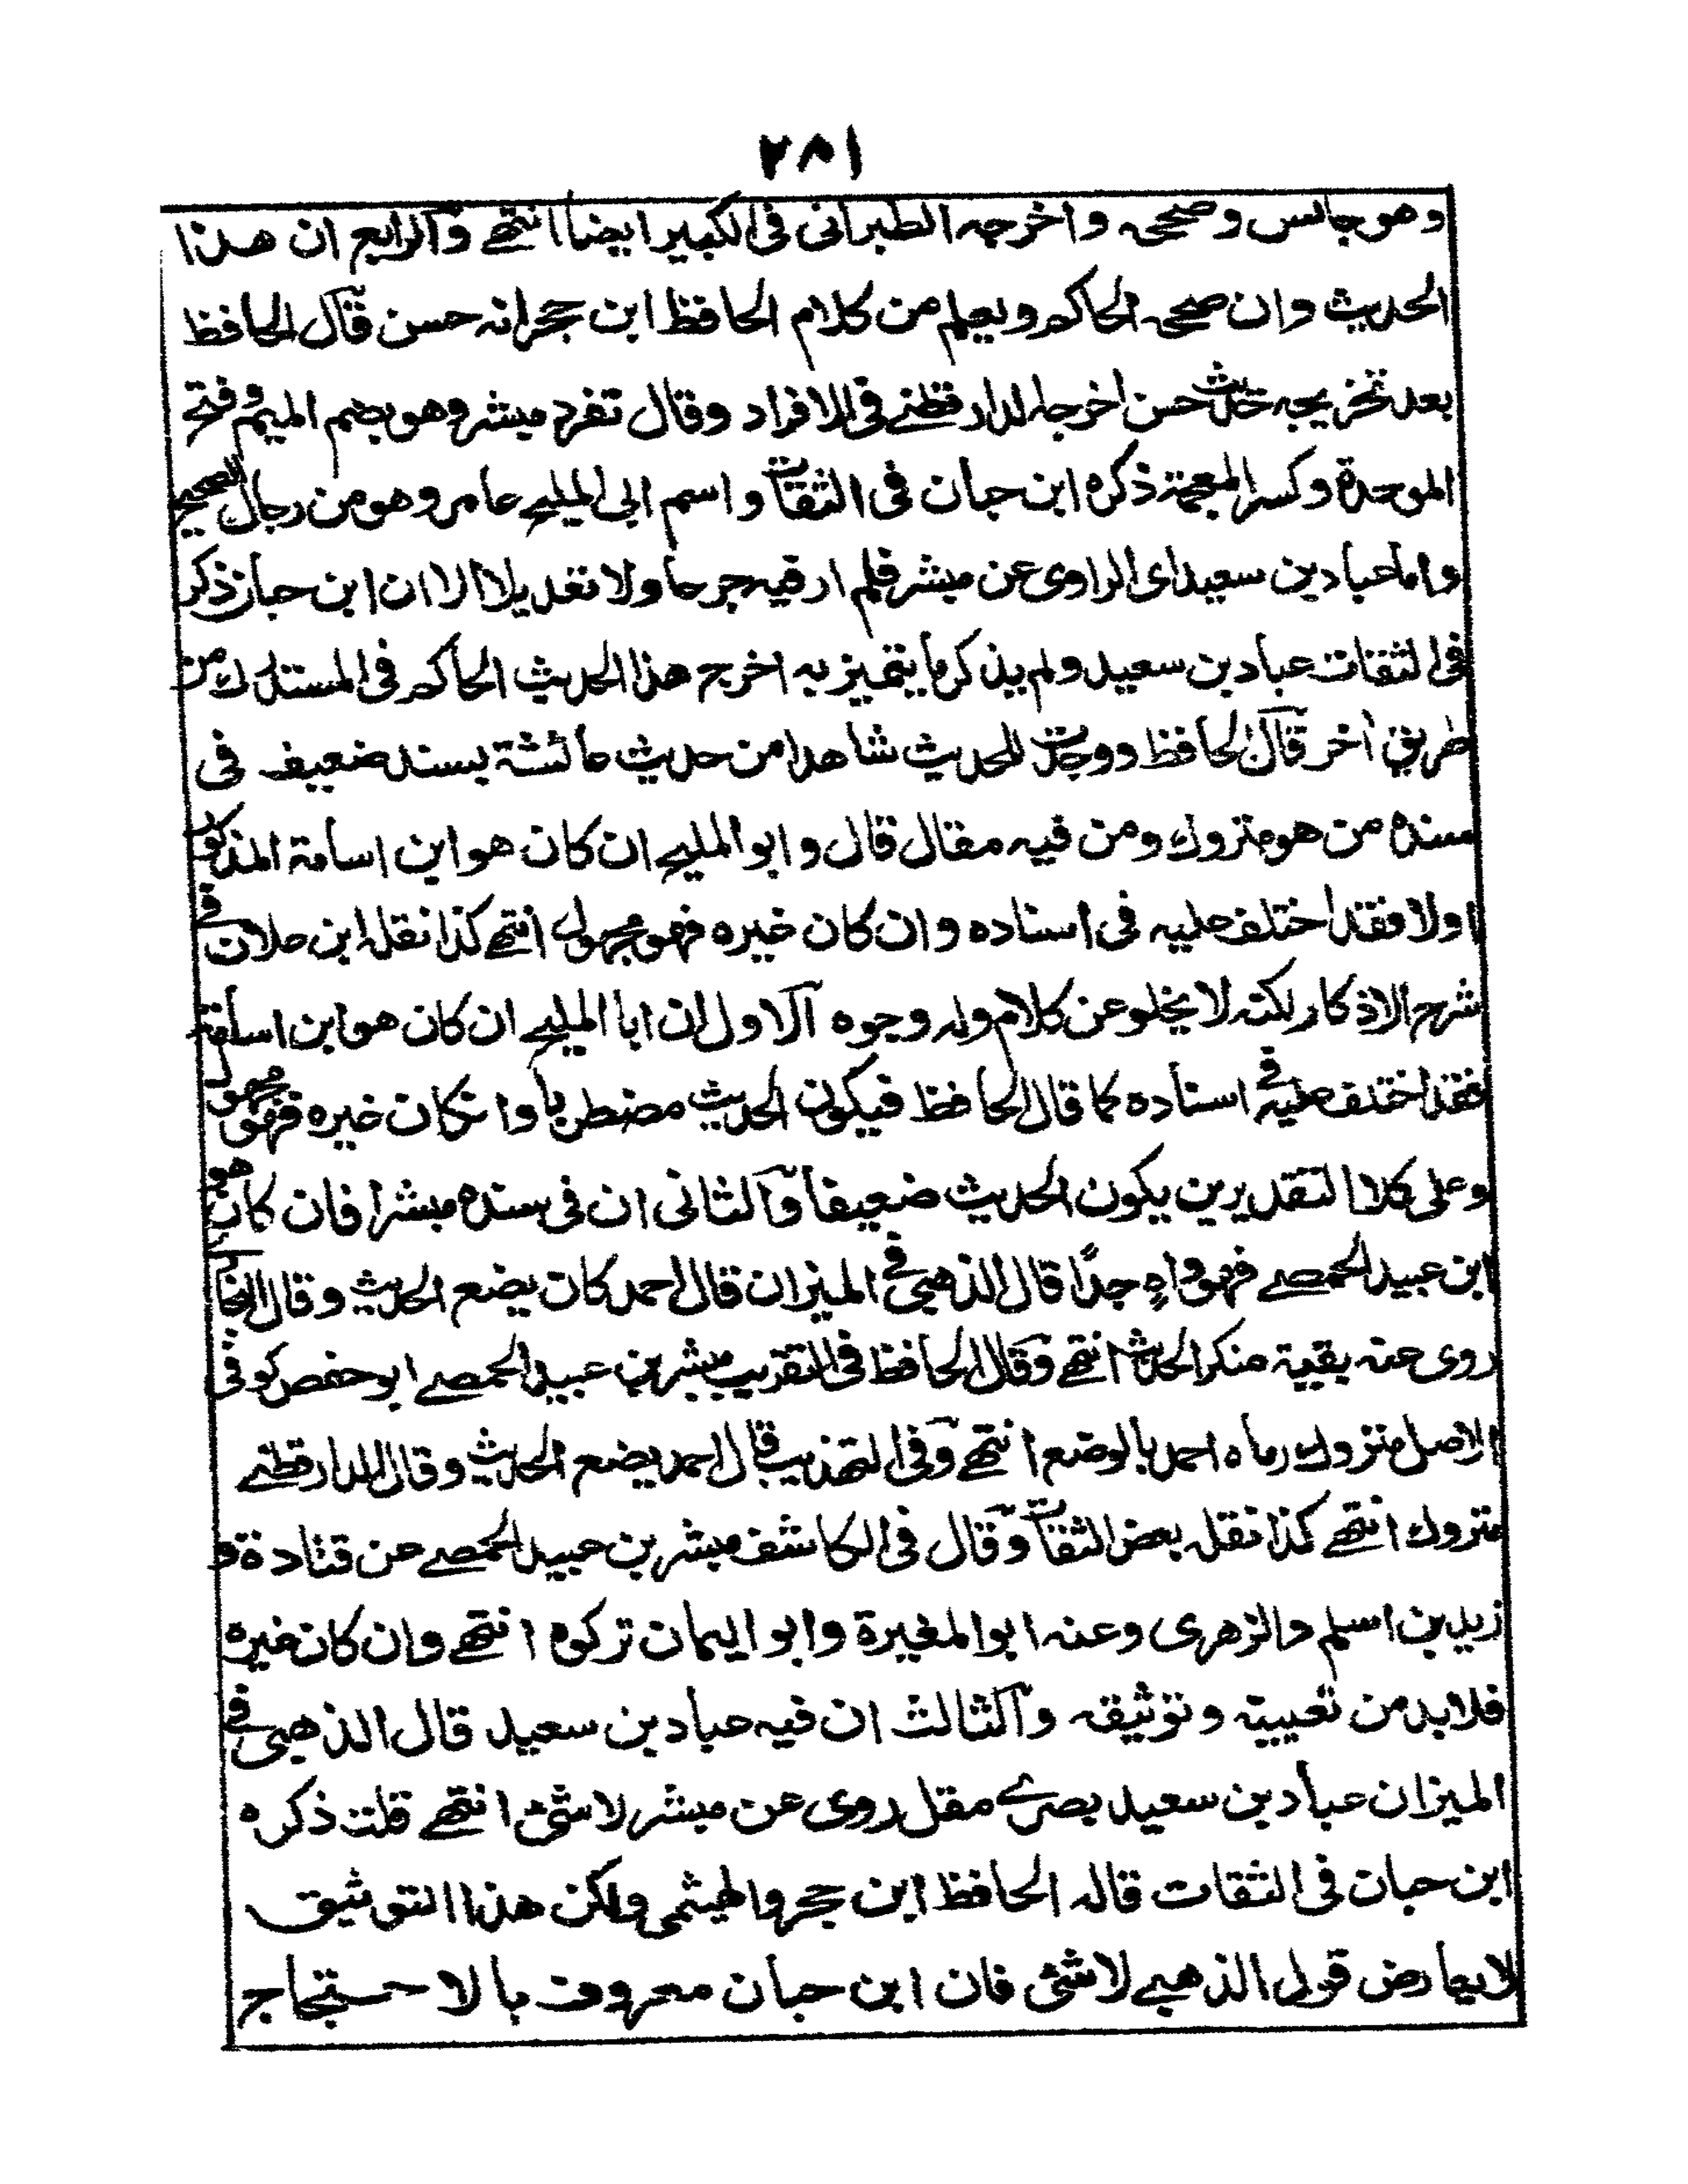 ٢٨١
وهو جالس وصححه واخرجه الطبرانى فى الكبير ايضا انتهے والرابع ان هذا
الحديث وان صححه الحاكم ويعلم من كلام الحافظ ابن حجر انه حسن قال الحافظ
بعد تخريجه حديث حسن اخرجه الدارقطنے فى الافراد وقال تفرد مبشر وهو بضم الميم وفتح
الموحدة وكسر المعجمة ذكره ابن حبان فى الثقات واسم ابى المليح عامر وهو من رجال الصحيح
واما عباد بن سعيد اى الراوى عن مبشر فلم ار فيه جرحا ولا تعديلا الا ان ابن حبان ذكر
فى الثقات عباد بن سعيد ولم يذكر ما يتميز به اخرج هذا الحديث الحاكم فى المستدرك من
طريق اخر قال الحافظ ووجدت للحديث شاهدا من حديث عائشة بسند ضعيف فى
سنده من هو متروك ومن فيه مقال قال وابو المليح ان كان هو ابن اسامة المذكور
اولا فقد اختلف عليه فى اسناده وان كان غيره فهو مجهول انتهے كذا نقله ابن علان فے
شرح الاذكار لكنه لا يخلو عن كلام وله وجوه الاول ان ابا المليح ان كان هو ابن اسامة
فقد اختلف عليه فے اسناده كما قال الحافظ فيكون الحديث مضطربا وانكان غيره فهو مجهول
وعلى كلا التقديرين يكون الحديث ضعيفا والثانى ان فى سنده مبشرا فان كان هو
ابن عبيد الحمصے فهو واهٍ جدًا قال الذهبى فے الميزان قال احمد كان يضع الحديث وقال البخارى
روى عنه بقية منكر الحديث انتهے وقال الحافظ فى التقريب مبشر بن عبيد الحمصے ابو حفص كوفى
الاصل متروك رماه احمد بالوضع انتهے وفى التهذيب قال احمد يضع الحديث وقال الدارقطنے
متروك انتهے كذا نقله بعض الثقات وقال فى الكاشف مبشر بن عبيد الحمصے عن قتادة و
زيد بن اسلم والزهرى وعنه ابو المغيرة وابو اليمان تركوه انتهے وان كان غيره
فلا بد من تعيينه وتوثيقه والثالث ان فيه عباد بن سعيد قال الذهبى فے
الميزان عباد بن سعيد بصرے مقل روى عن مبشر لا شئ انتهے قلت ذكره
ابن حبان فى الثقات قاله الحافظ ابن حجر والهيثمى ولكن هذا التوثيق
لا يعارض قول الذهبے لا شئ فان ابن حبان معروف بالاحتجاج